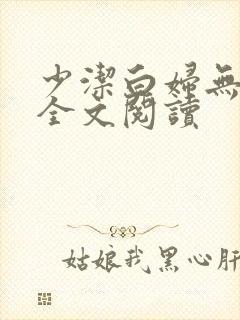 少潔白婦無
全文閱讀
姑娘我黑心肝